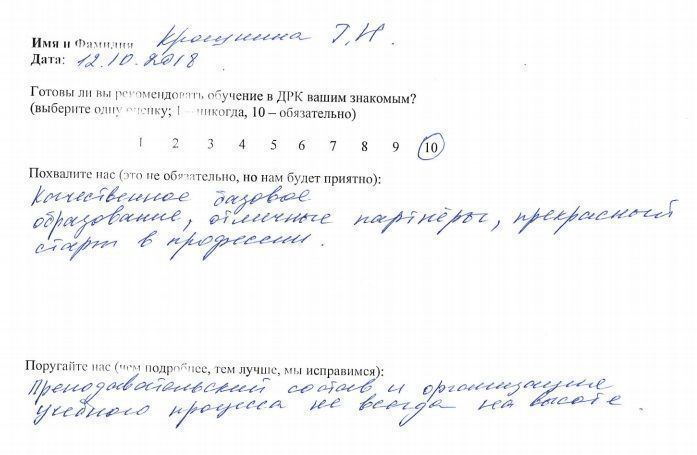 Имя и Фамилия Крошкина Т.Н.
Дата: 12.10.2018
Готовы ли вы рекомендовать обучение в ДРК вашим знакомым?
(выберите одну оценку; 1 – никогда, 10 – обязательно)
1 2 3 4 5 6 7 8 9 10
Похвалите нас (это не обязательно, но нам будет приятно):
Качественное базовое
образование, отличные партнёры, прекрасный
старт в профессии.
Поругайте нас (чем подробнее, тем лучше, мы исправимся):
Преподавательский состав и организация
учебного процесса не всегда на высоте.